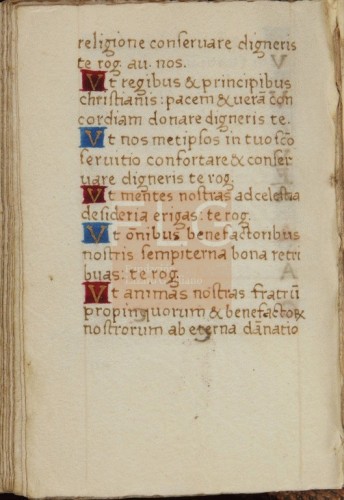 religione conseruare digneris
te rog. au. nos.
Vt regibus & principibus
christianis: pacem & uerā cōn
cordiam donare digneris te.
Vt nos metipsos in tuo scō
seruitio confortare & conser
uare digneris te rog.
Vt mentes nostras ad celestia
desideria erigas: te rog.
Vt oīnibus benefactoribus
nostris sempiterna bona retri
buas: te rog.
Vt animas nostras fratrū
propinquorum & benefactoꝝ
nostrorum ab eterna dānatio